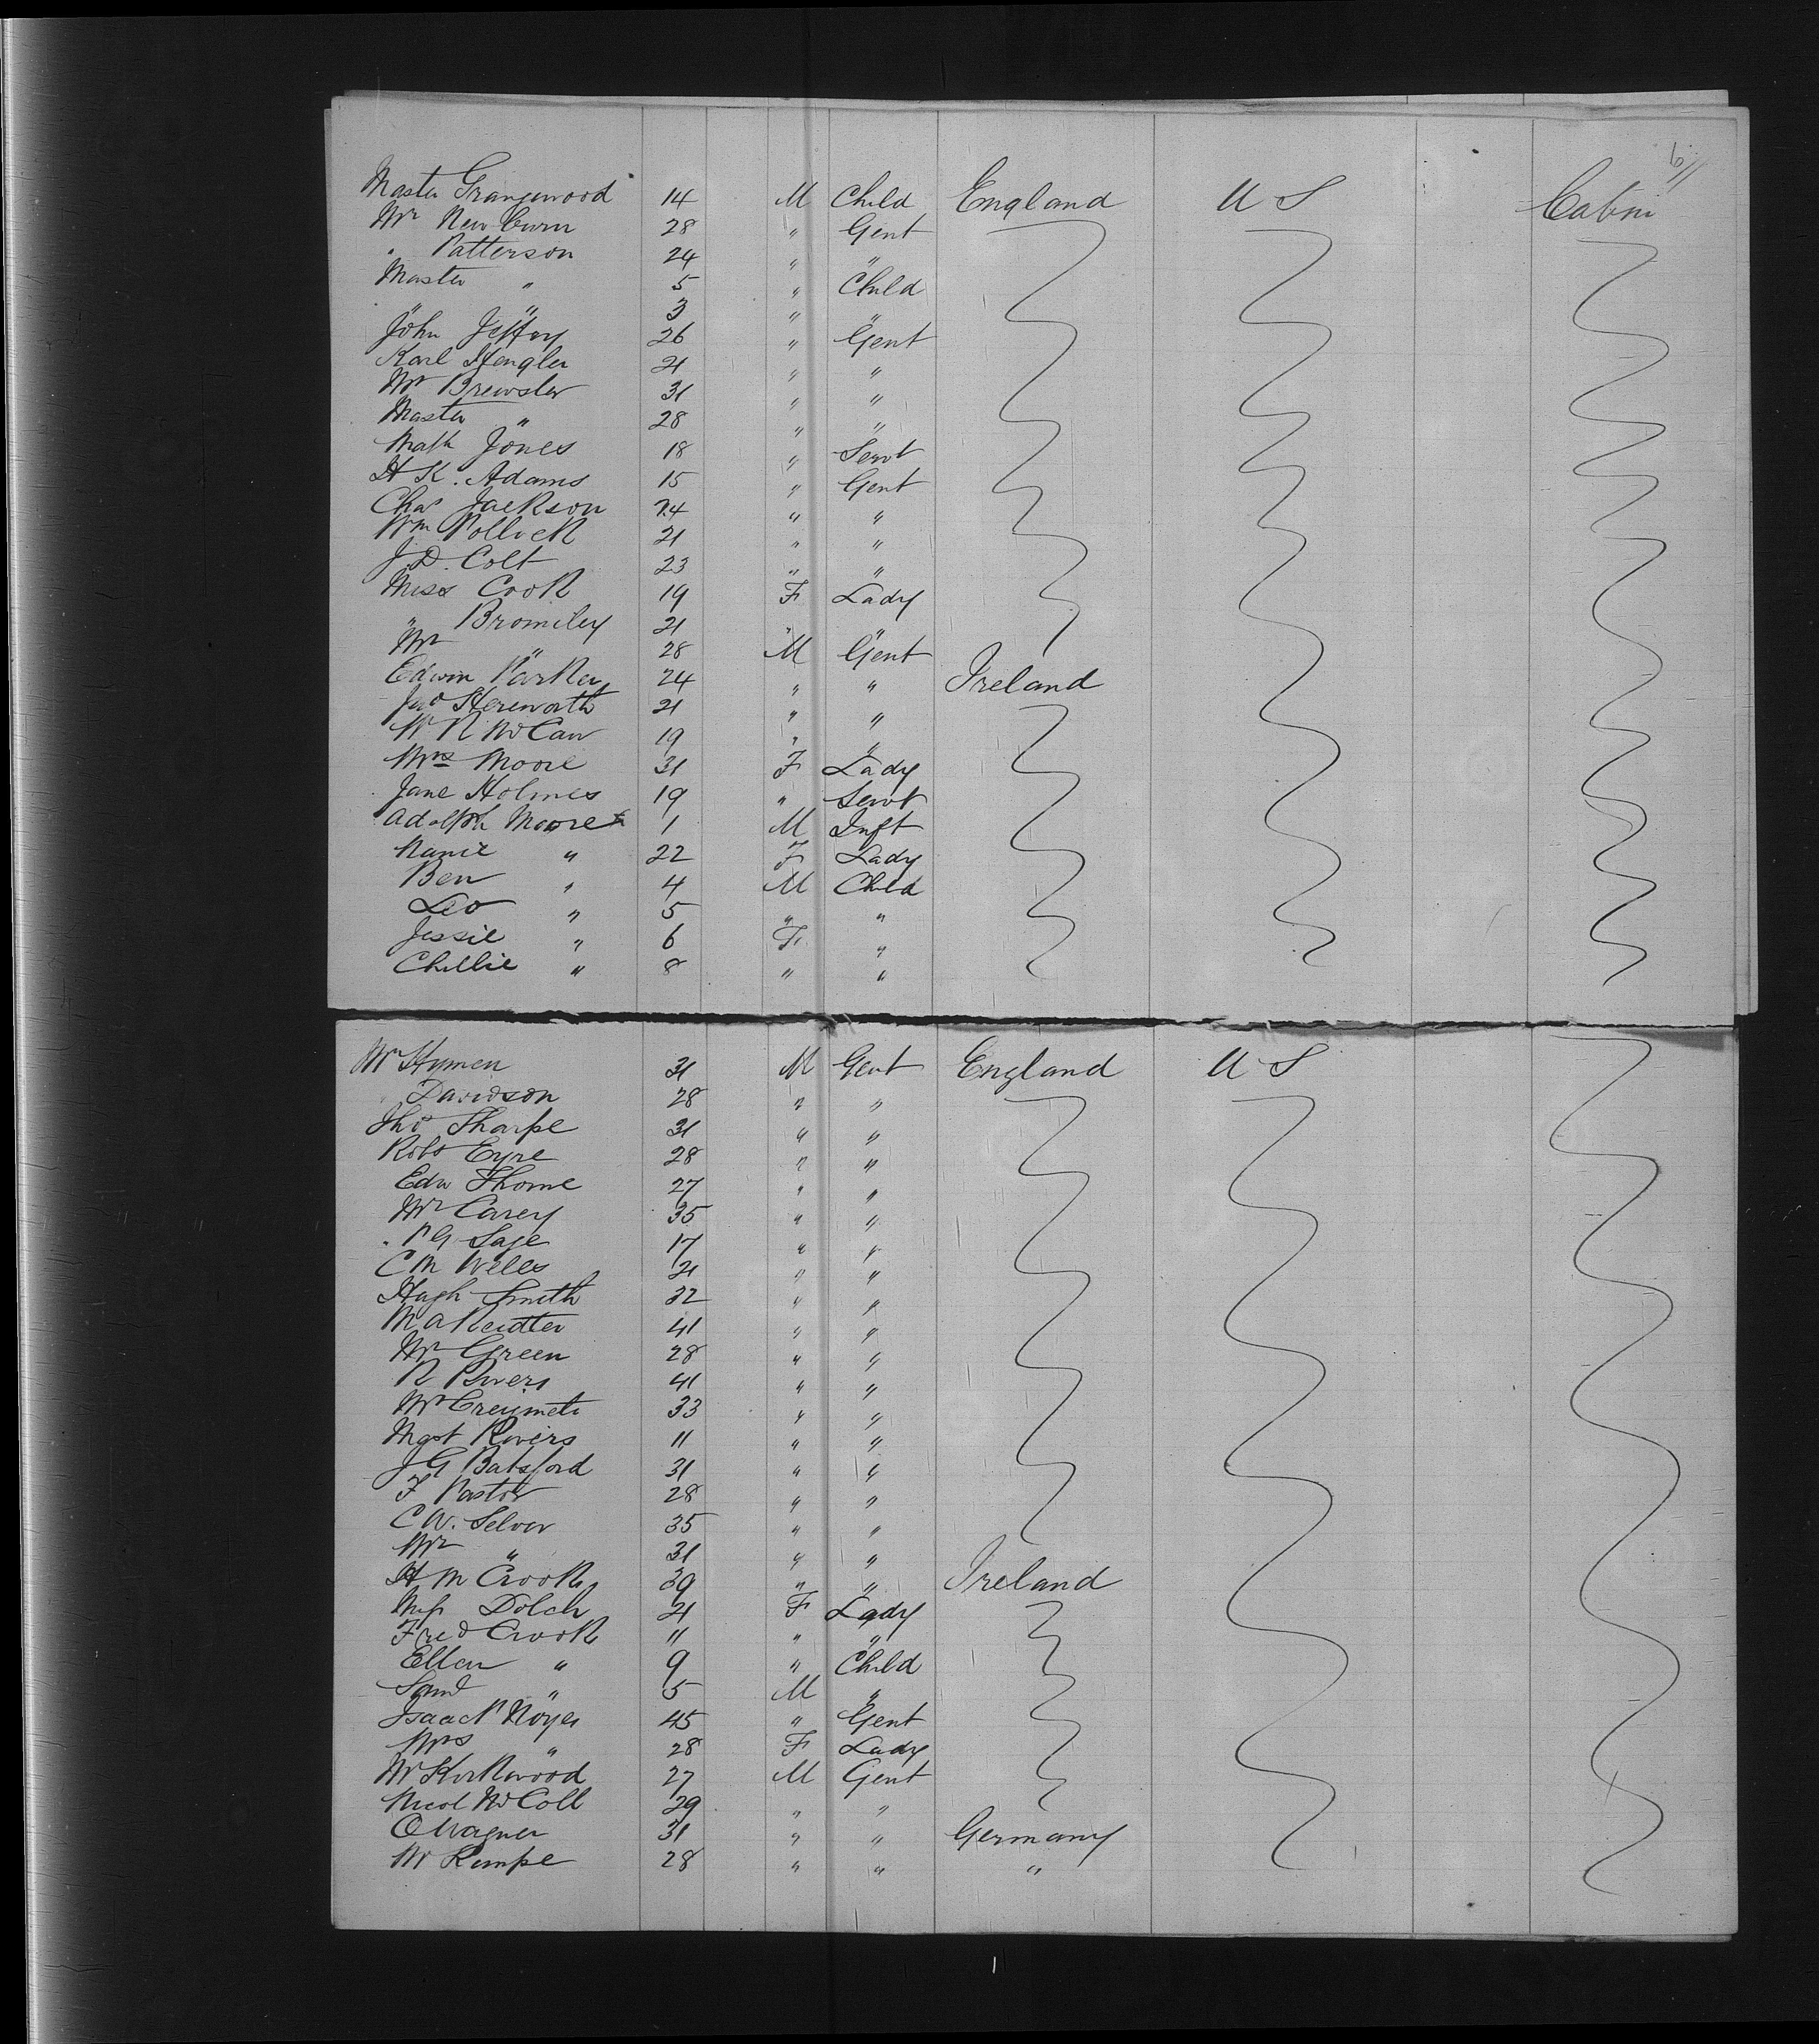 6
Master Grangewood 14 M Child England U S Cabin
Mr Newburn 28 " Gent
" Patterson 24 " "
Master " 5 " Child
" " 3 " "
John Jeffrey 26 " Gent
Karl Hengler 21 " "
Mr Brewster 31 " "
Master " 28 " "
Math Jones 18 " Servt
H K. Adams 15 " Gent
Chas Jackson 24 " "
Wm Pollock 21 " "
J. D. Colt 23 " "
Miss Cook 19 F Lady
" Bromiley 21 " "
Mr " 28 M Gent
Edwin Parker 24 " " Ireland
Jno Hereworth 21 " "
W R McCaw 19 " "
Mrs Moore 31 F Lady
Jane Holmes 19 " Servt
Adolph Moore 1 M Inft
Nanie " 22 F Lady
Ben " 4 M Child
Leo " 5 " "
Jessie " 6 F "
Chellie " 8 " "
Mr Hymen 31 M Gent England U S
" Davidson 28 " "
Tho Sharpe 31 " "
Robt Eyre 28 " "
Edw Thorne 27 " "
Mr Carey 35 " "
" P G Sage 17 " "
C M Welles 21 " "
Hugh Smith 32 " "
M A 41 " "
Mr Green 28 " "
R Rivers 41 " "
Mr 33 " "
Mast Rivers 11 " "
J G Batsford 31 " "
F Pastor 28 " "
C W. Selver 35 " "
Mr " 31 " "
H M Crook 39 " " Ireland
Miss Dolch 21 F Lady
Fred Crook 11 " "
Ellen " 9 " Child
Saml " 5 M "
Isaac P Noyes 45 " Gent
Mrs " 28 F Lady
Mr Kirkwood 27 M Gent
Nicol McColl 29 " "
O Wagner 31 " " Germany
Mr Kempe 28 " " "